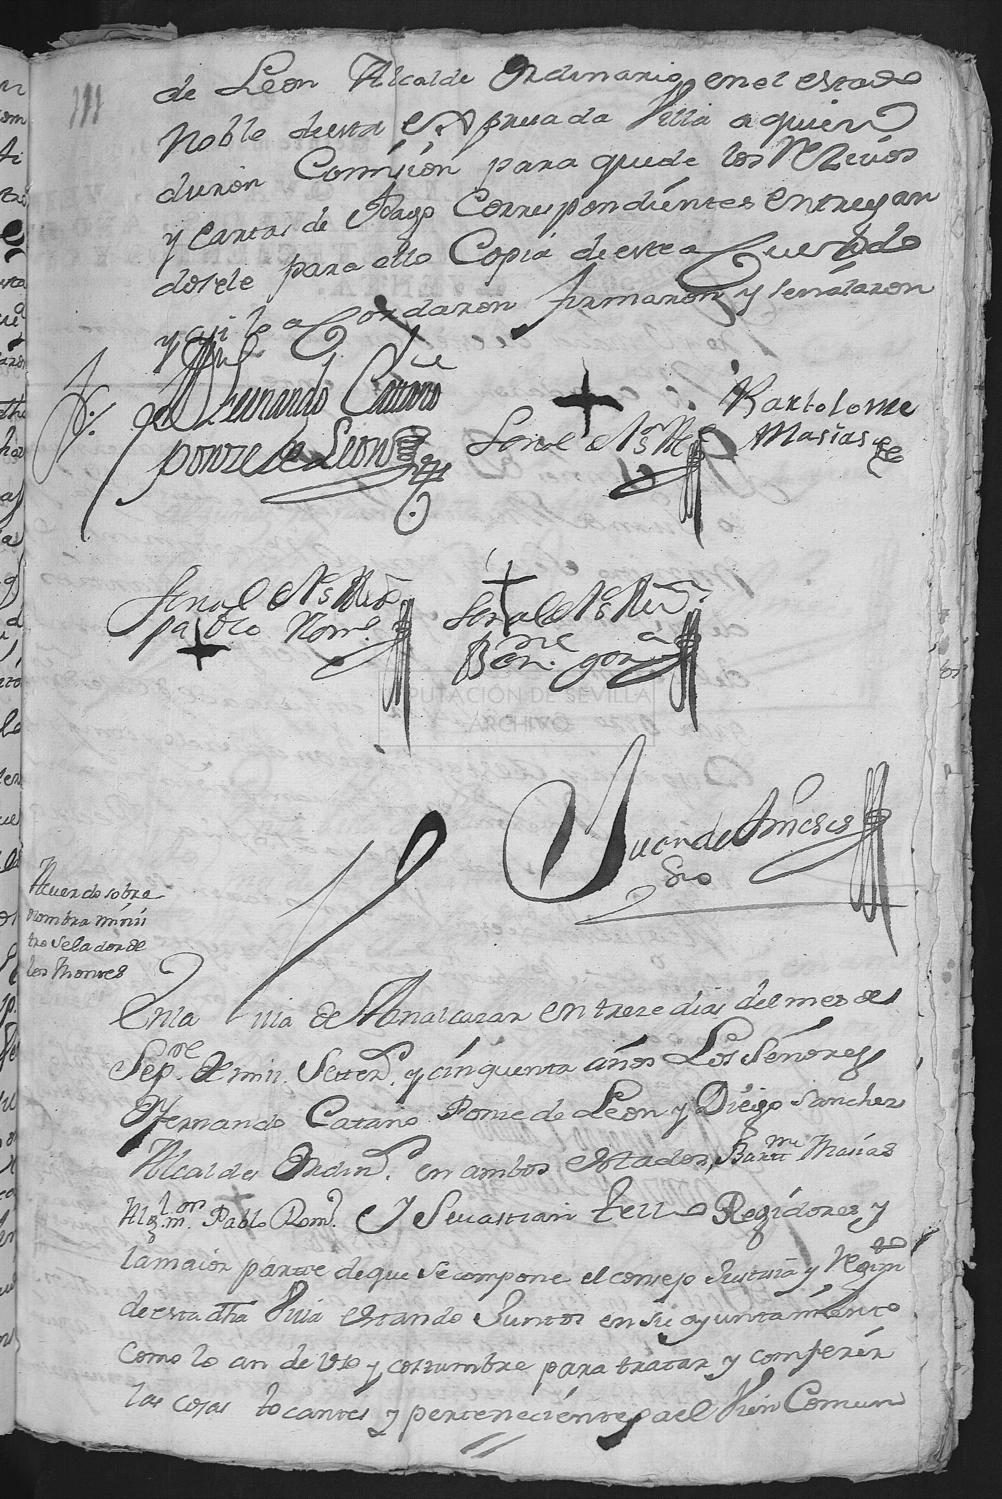 de Leon Alcalde Ordinario en el estado
Noble de esta expresada Villa a quien
dieron Comision para que de los Recivos
y cartas de Pago Correspondientes entregan
dosele para ello Copia de este aCuerdo
y asi lo aCordaron firmaron y señalaron
Fernando Cataño
ponze de Leon
Señal de
Bartolome
Masias
Señal de
pablo Rom.
Señal de
Juan de
SSno
Acuerdo sobre
nombra minis
tro Selador de
los Montes
En la Villa de Aznalcazar en treze dias del mes de
Sepre. de mil Setter. y cinquenta años Los Señores
Fernando Cataño Ponze de Leon y Diego Sanchez
Alcaldes Ordin. en ambos estados, Barttme Masias
Algl. mor. Pablo Rom. Y Sevastian tello Regidores y
la maior partte de que se compone el consejo Justicia y Regimto
de esta dha Villa estando Juntos en su ayuntamiento
como lo an de uso y costumbre para tratar y conferir
las cosas tocantes y pertenecientes a el Vien Comun
DIPUTACIÓN DE SEVILLA
ARCHIVO